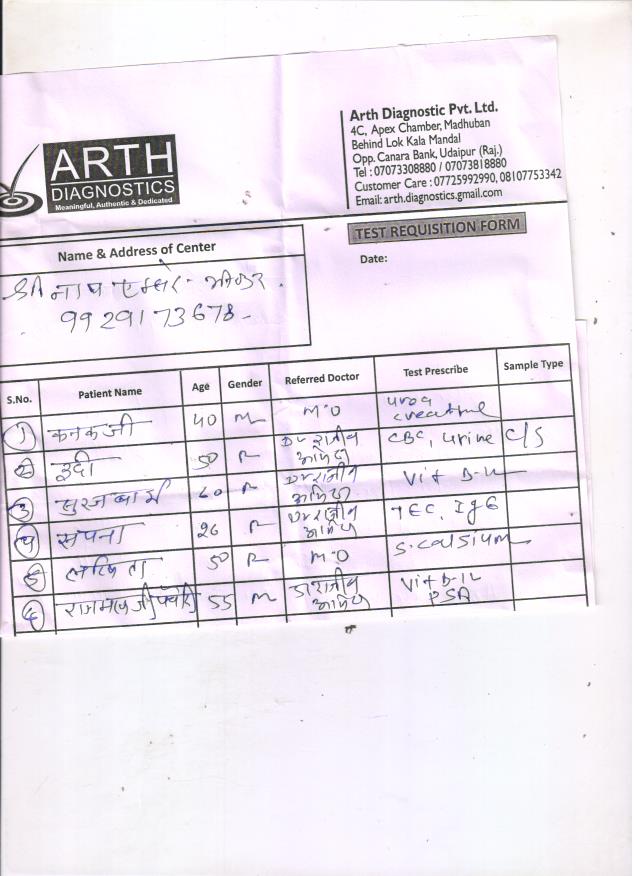 ARTH
DIAGNOSTICS
Meaningful, Authentic & Dedicated
Arth Diagnostic Pvt. Ltd.
4C, Apex Chamber, Madhuban
Behind Lok Kala Mandal
Opp. Canara Bank, Udaipur (Raj.)
Tel : 07073308880 / 07073818880
Customer Care : 07725992990, 08107753342
Email: arth.diagnostics.gmail.com
TEST REQUISITION FORM
Date:
Name & Address of Center
9929173678
S.No. Patient Name Age Gender Referred Doctor Test Prescribe Sample Type
1 कनकजी 40 M M.O urea
2 50 F Dr CBC, urine C/S
3 60 F Dr Vit B-12
4 सपना 26 F Dr TEC, IgE
5 ललिता 50 F M.O S. calsium
6 55 M डा Vit B-12
PSA